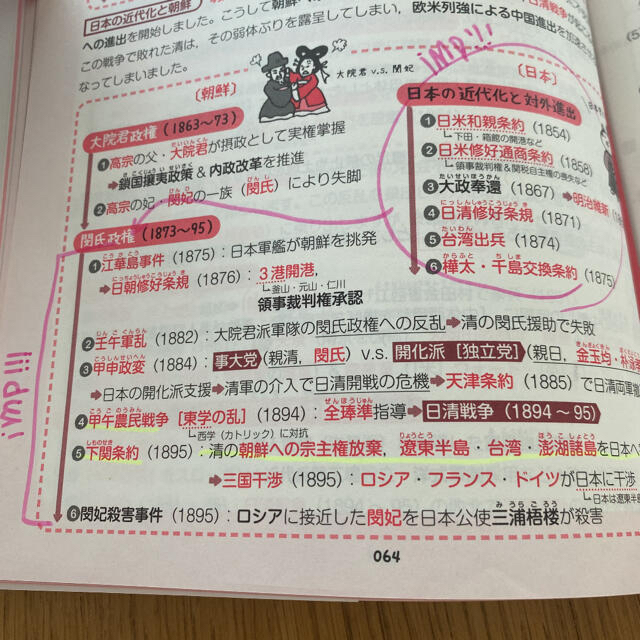 日本の近代化と朝鮮
への進出を開始しました。こうして朝鮮
この戦争で敗れた清は、その弱体ぶりを露呈してしまい、欧米列強による中国進出を加速
なってしまいました。
大院君 v.s. 閔妃
imp!!
〔朝鮮〕
大院君政権（1863～73）
❶高宗の父・大院君が摂政として実権掌握
➡鎖国攘夷政策＆内政改革を推進
❷高宗の妃・閔妃の一族（閔氏）により失脚
〔日本〕
日本の近代化と対外進出
❶日米和親条約（1854）
下田・箱館の開港など
❷日米修好通商条約（1858）
領事裁判権＆関税自主権の喪失など
❸大政奉還（1867）➡明治維新
❹日清修好条規（1871）
❺台湾出兵（1874）
❻樺太・千島交換条約（1875）
閔氏政権（1873～95）
❶江華島事件（1875）：日本軍艦が朝鮮を挑発
➡日朝修好条規（1876）：3港開港，
釜山・元山・仁川
領事裁判権承認
❷壬午軍乱（1882）：大院君派軍隊の閔氏政権への反乱➡清の閔氏援助で失敗
❸甲申政変（1884）：事大党（親清，閔氏）v.s. 開化派［独立党］（親日，金玉均・
➡日本の開化派支援➡清軍の介入で日清開戦の危機➡天津条約（1885）で日清両軍
❹甲午農民戦争［東学の乱］（1894）：全琫準指導➡日清戦争（1894～95）
西学（カトリック）に対抗
❺下関条約（1895）：清の朝鮮への宗主権放棄，遼東半島・台湾・澎湖諸島を日本
➡三国干渉（1895）：ロシア・フランス・ドイツが日本に干渉
日本は遼東半
❻閔妃殺害事件（1895）：ロシアに接近した閔妃を日本公使三浦梧楼が殺害
imp!!!
064